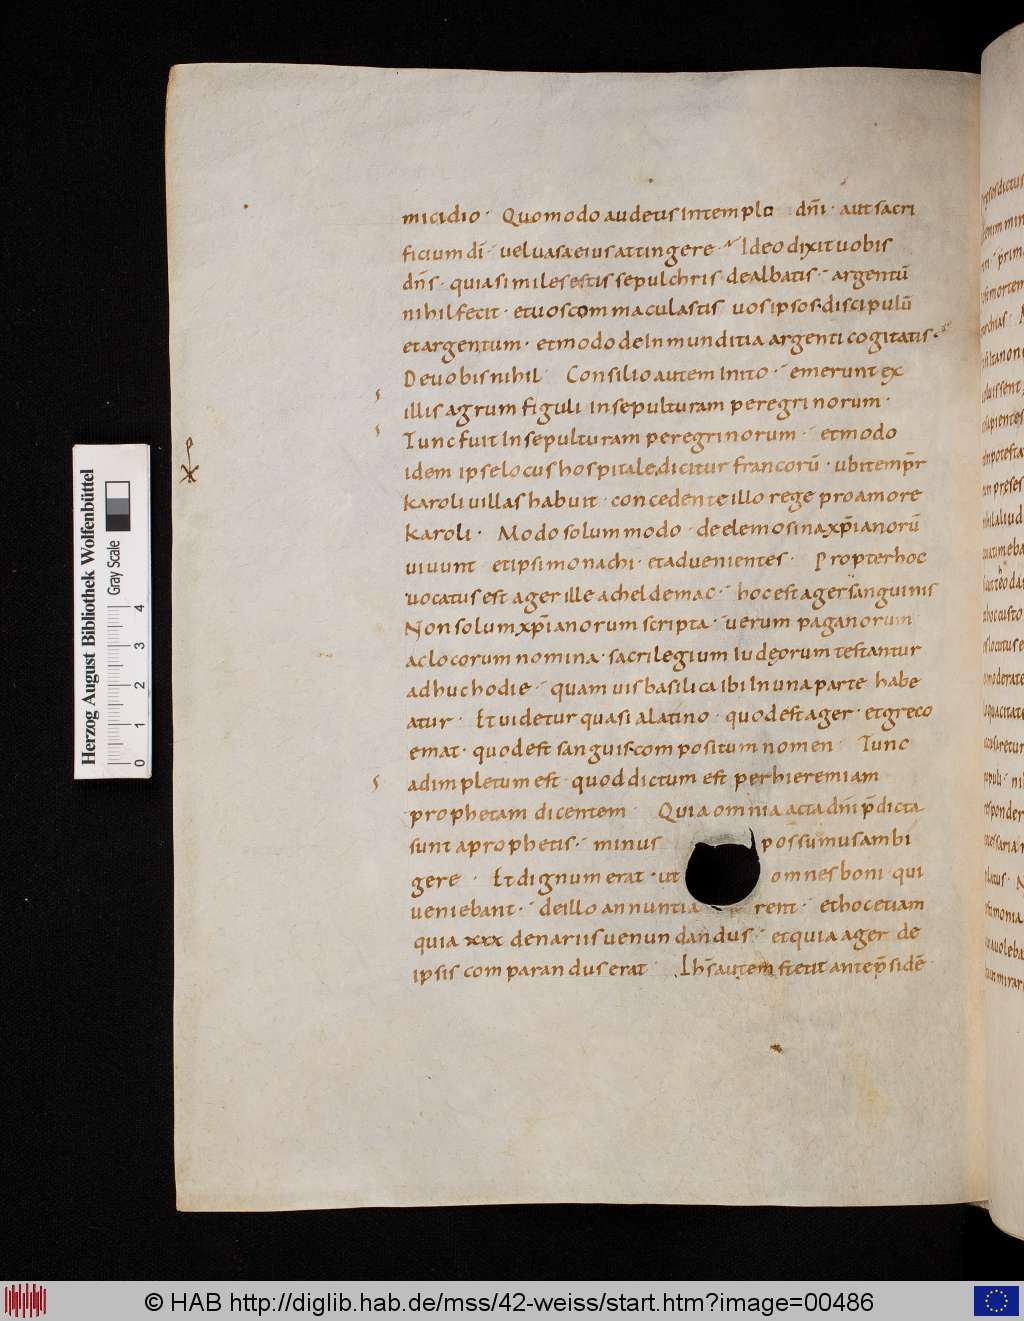 micidio· Quomodo audetis in templo dn̄i· aut sacri
ficium dī· uel uasa eius attingere· Ideo dixit uobis
dn̄s· quia similes estis sepulchris dealbatis· argentū
nihil fecit· et uos commaculastis uos ipsos· discipulū
et argentum· et modo de inmunditia argenti cogitatis·
De uobis nihil Consilio autem inito· emerunt ex
illis agrum figuli in sepulturam peregrinorum·
Tunc fuit in sepulturam peregrinorum· et modo
idem ipse locus hospitale dicitur francorū· ubi temp̄r
karoli uillas habuit· concedente illo rege pro amore
karoli· Modo solummodo de elemosina xp̄ianorū
uiuunt et ipsi monachi· et aduenientes· Propter hoc
uocatus est ager ille acheldemac· hoc est ager sanguinis
Non solum xp̄ianorum scripta· uerum paganorum
ac locorum nomina· sacrilegium iudęorum testantur
adhuc hodie· quamuis basilica ibi in una parte habe
atur· Et uidetur quasi a latino· quod est ager· et greco
emat· quod est sanguis· compositum nomen Tunc
adimpletum est quod dictum est per hieremiam
prophetam dicentem Quia omnia acta dn̄i p̄dicta
sunt a prophetis· minus possumus ambi
gere· Et dignum erat· ut omnes boni qui
ueniebant· de illo annuntia rent· et hoc etiam
quia xxx denariis uenundandus· et quia ager de
ipsis comparandus erat Ih̄s autem stetit ante p̄sidē
Herzog August Bibliothek Wolfenbüttel
Gray Scale
0 1 2 3 4
© HAB http://diglib.hab.de/mss/42-weiss/start.htm?image=00486